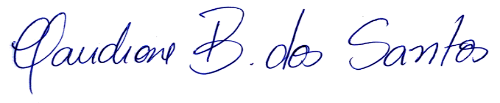 Claudione B. dos Santos